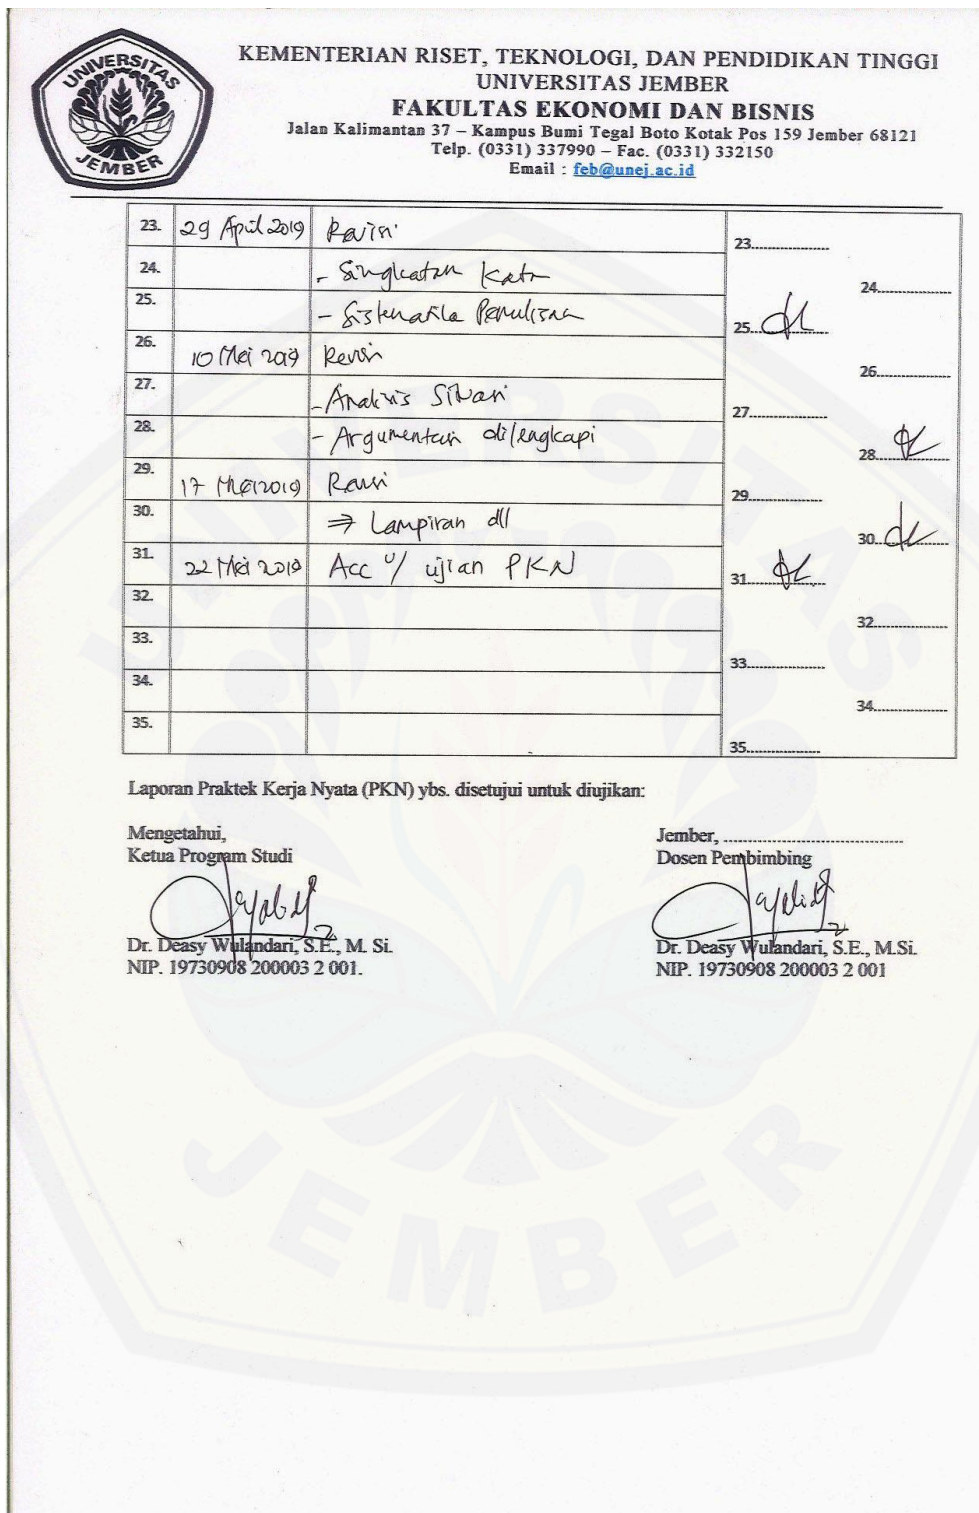 UNIVERSITAS
JEMBER
KEMENTERIAN RISET, TEKNOLOGI, DAN PENDIDIKAN TINGGI
UNIVERSITAS JEMBER
FAKULTAS EKONOMI DAN BISNIS
Jalan Kalimantan 37 – Kampus Bumi Tegal Boto Kotak Pos 159 Jember 68121
Telp. (0331) 337990 – Fac. (0331) 332150
Email : feb@unej.ac.id
23. 29 April 2019 Revisi 23
24. - Singkatan Kata 24
25. - Sistematika Penulisan 25
26. 10 Mei 2019 Revisi 26
27. - Analisis 27
28. - Argumentasi dilengkapi 28
29. 17 Mei 2019 Revisi 29
30. ⇒ Lampiran dll 30
31. 22 Mei 2019 Acc u/ ujian PKN 31
32. 32
33. 33
34. 34
35. 35
Laporan Praktek Kerja Nyata (PKN) ybs. disetujui untuk diujikan:
Mengetahui,
Ketua Program Studi
Dr. Deasy Wulandari, S.E., M. Si.
NIP. 19730908 200003 2 001.
Jember, ........................................
Dosen Pembimbing
Dr. Deasy Wulandari, S.E., M.Si.
NIP. 19730908 200003 2 001
UNIVERSITAS
JEMBER